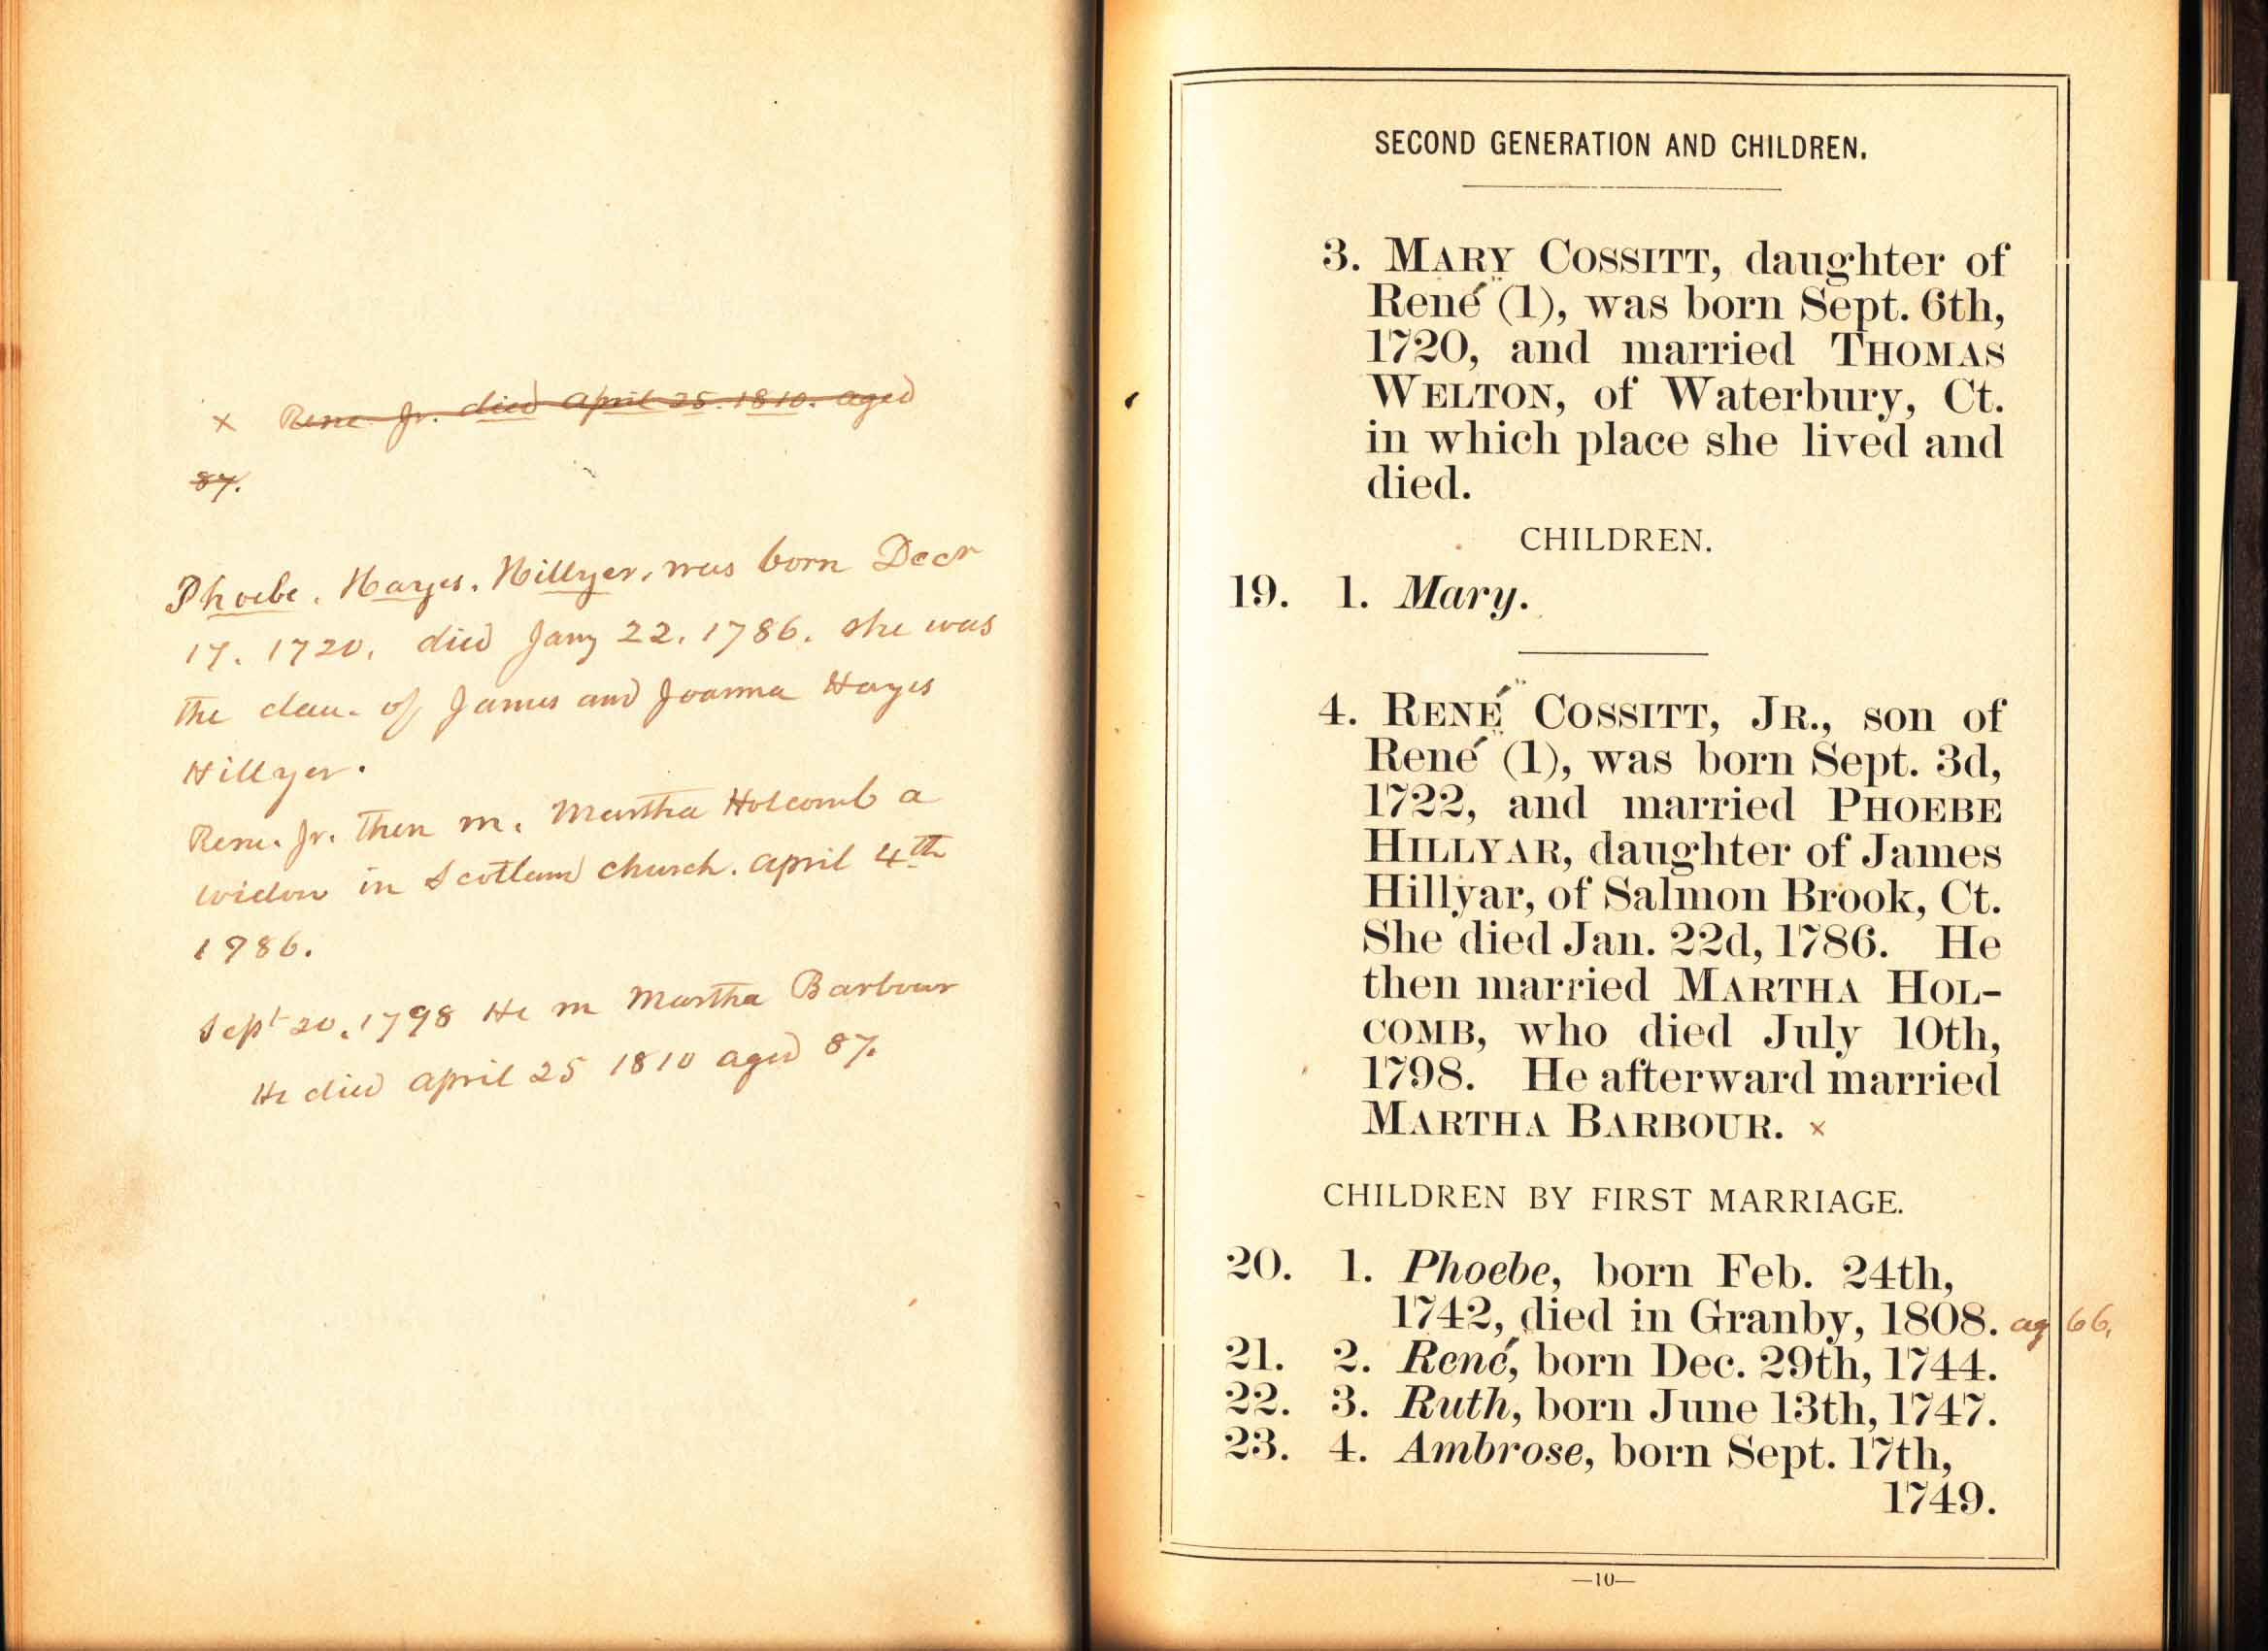 x Rene Jr. died april 25. 1810. aged
87.
Phoebe. Hayes. Hillyer, was born Decr
17. 1720. died Jany 22. 1786. she was
the dau. of James and Joanna Hayes
Hillyer.
Rene. Jr. Then m. Martha Holcomb a
widow in Scotland church. april 4th
1786.
Sept 20. 1798 He m Martha Barbour
He died april 25 1810 aged 87.
SECOND GENERATION AND CHILDREN.
3. MARY COSSITT, daughter of
René (1), was born Sept. 6th,
1720, and married THOMAS
WELTON, of Waterbury, Ct.
in which place she lived and
died.
CHILDREN.
19. 1. Mary.
4. RENÉ COSSITT, JR., son of
René (1), was born Sept. 3d,
1722, and married PHOEBE
HILLYAR, daughter of James
Hillyar, of Salmon Brook, Ct.
She died Jan. 22d, 1786. He
then married MARTHA HOL-
COMB, who died July 10th,
1798. He afterward married
MARTHA BARBOUR. x
CHILDREN BY FIRST MARRIAGE.
20. 1. Phoebe, born Feb. 24th,
1742, died in Granby, 1808. ag 66.
21. 2. René, born Dec. 29th, 1744.
22. 3. Ruth, born June 13th, 1747.
23. 4. Ambrose, born Sept. 17th,
1749.
—10—